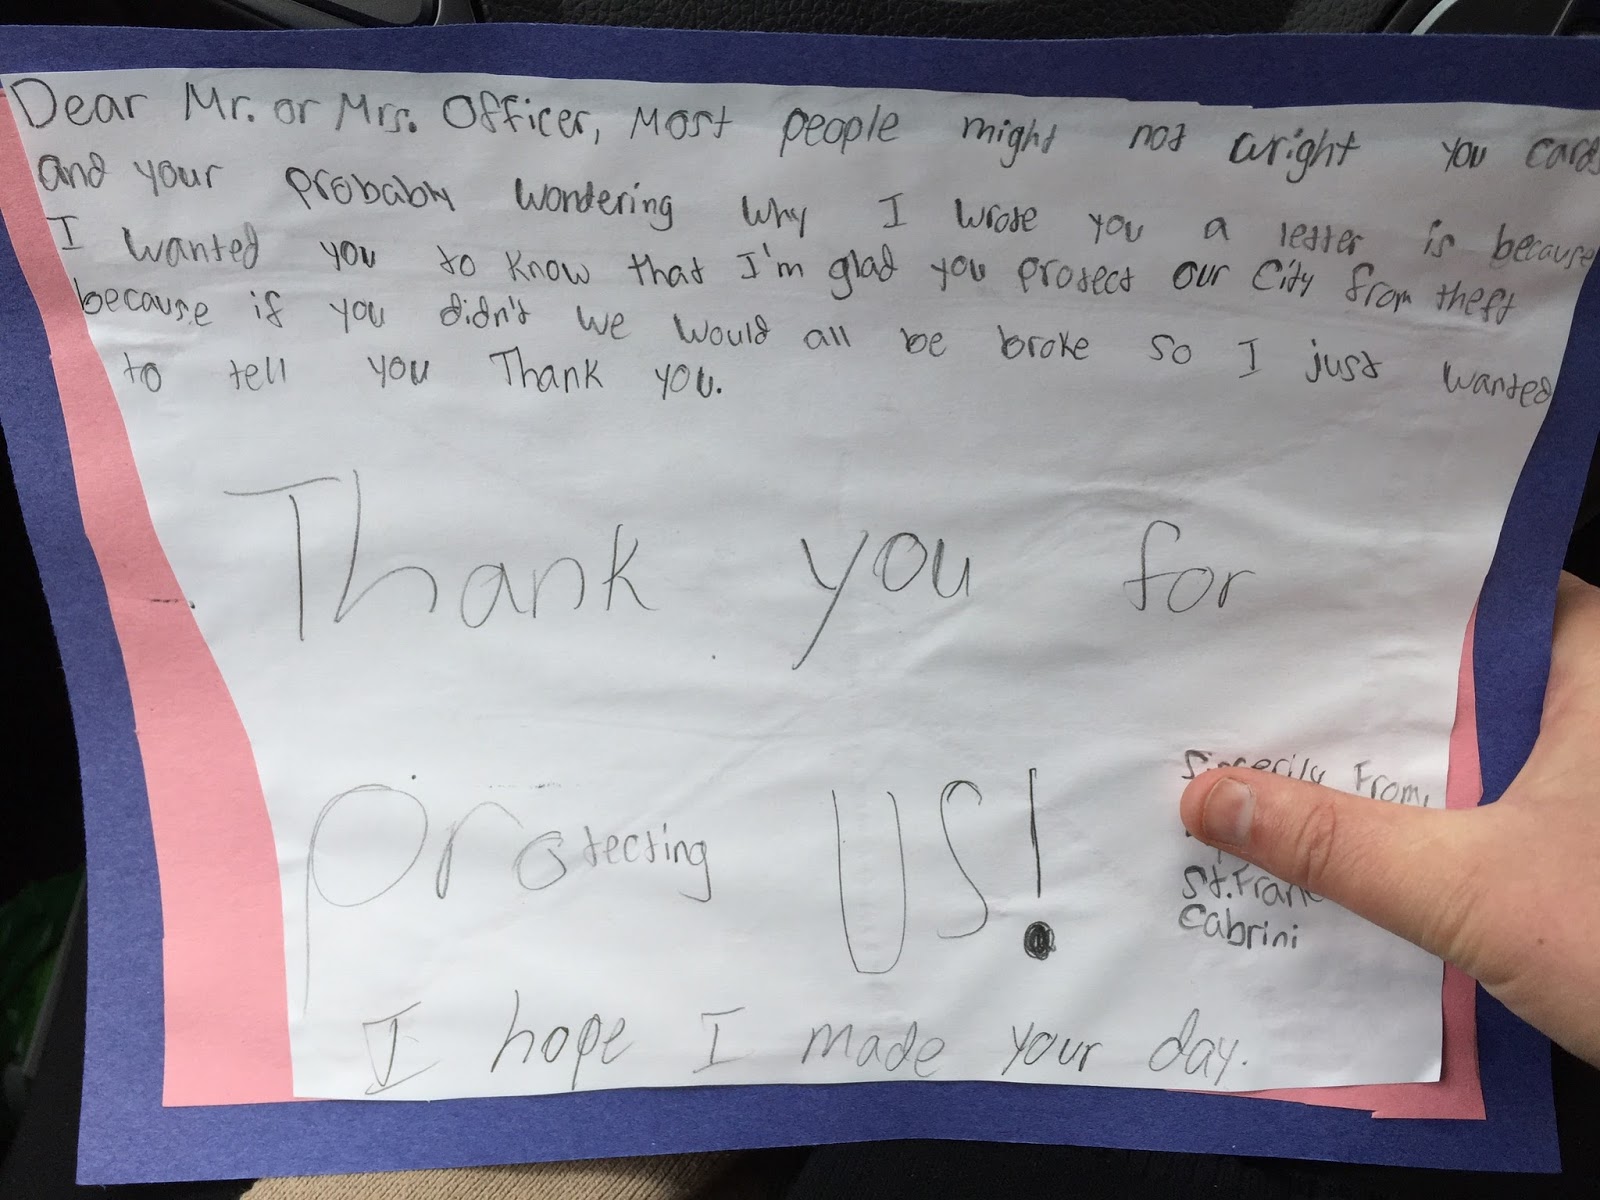 Dear Mr. or Mrs. Officer, Most people might not wright you cards
and your probably wondering why I wrote you a letter is because
I wanted you to know that I'm glad you protect our City from theft
because if you didn't we would all be broke so I just wanted
to tell you Thank you.
Thank you for
protecting US!
Sincerily From,
St. Franc
Cabrini
I hope I made your day.